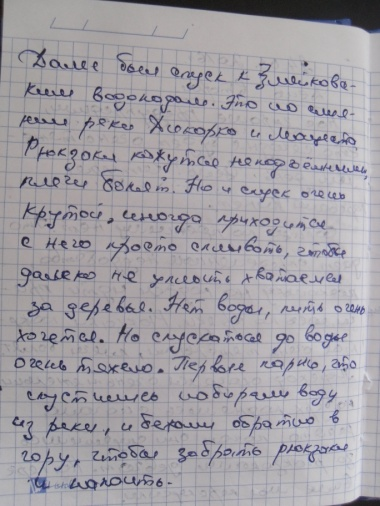 Далее был спуск к Змейкова-
ким водопадам. Это по слия-
нии реки Джокорко и Мацеста.
Рюкзаки кажутся неподъёмными,
плечи болят. Но и спуск очень
крутой, иногда приходится
с него просто сплывать, чтобы
далеко не уплыть хватаемся
за деревья. Нет воды, пить очень
хочется. Но спускаться до воды
очень тяжело. Первые парни, что
спустились набирали воду
из реки, и бежали обратно в
гору, чтобы забрать рюкзаки
и напоить.